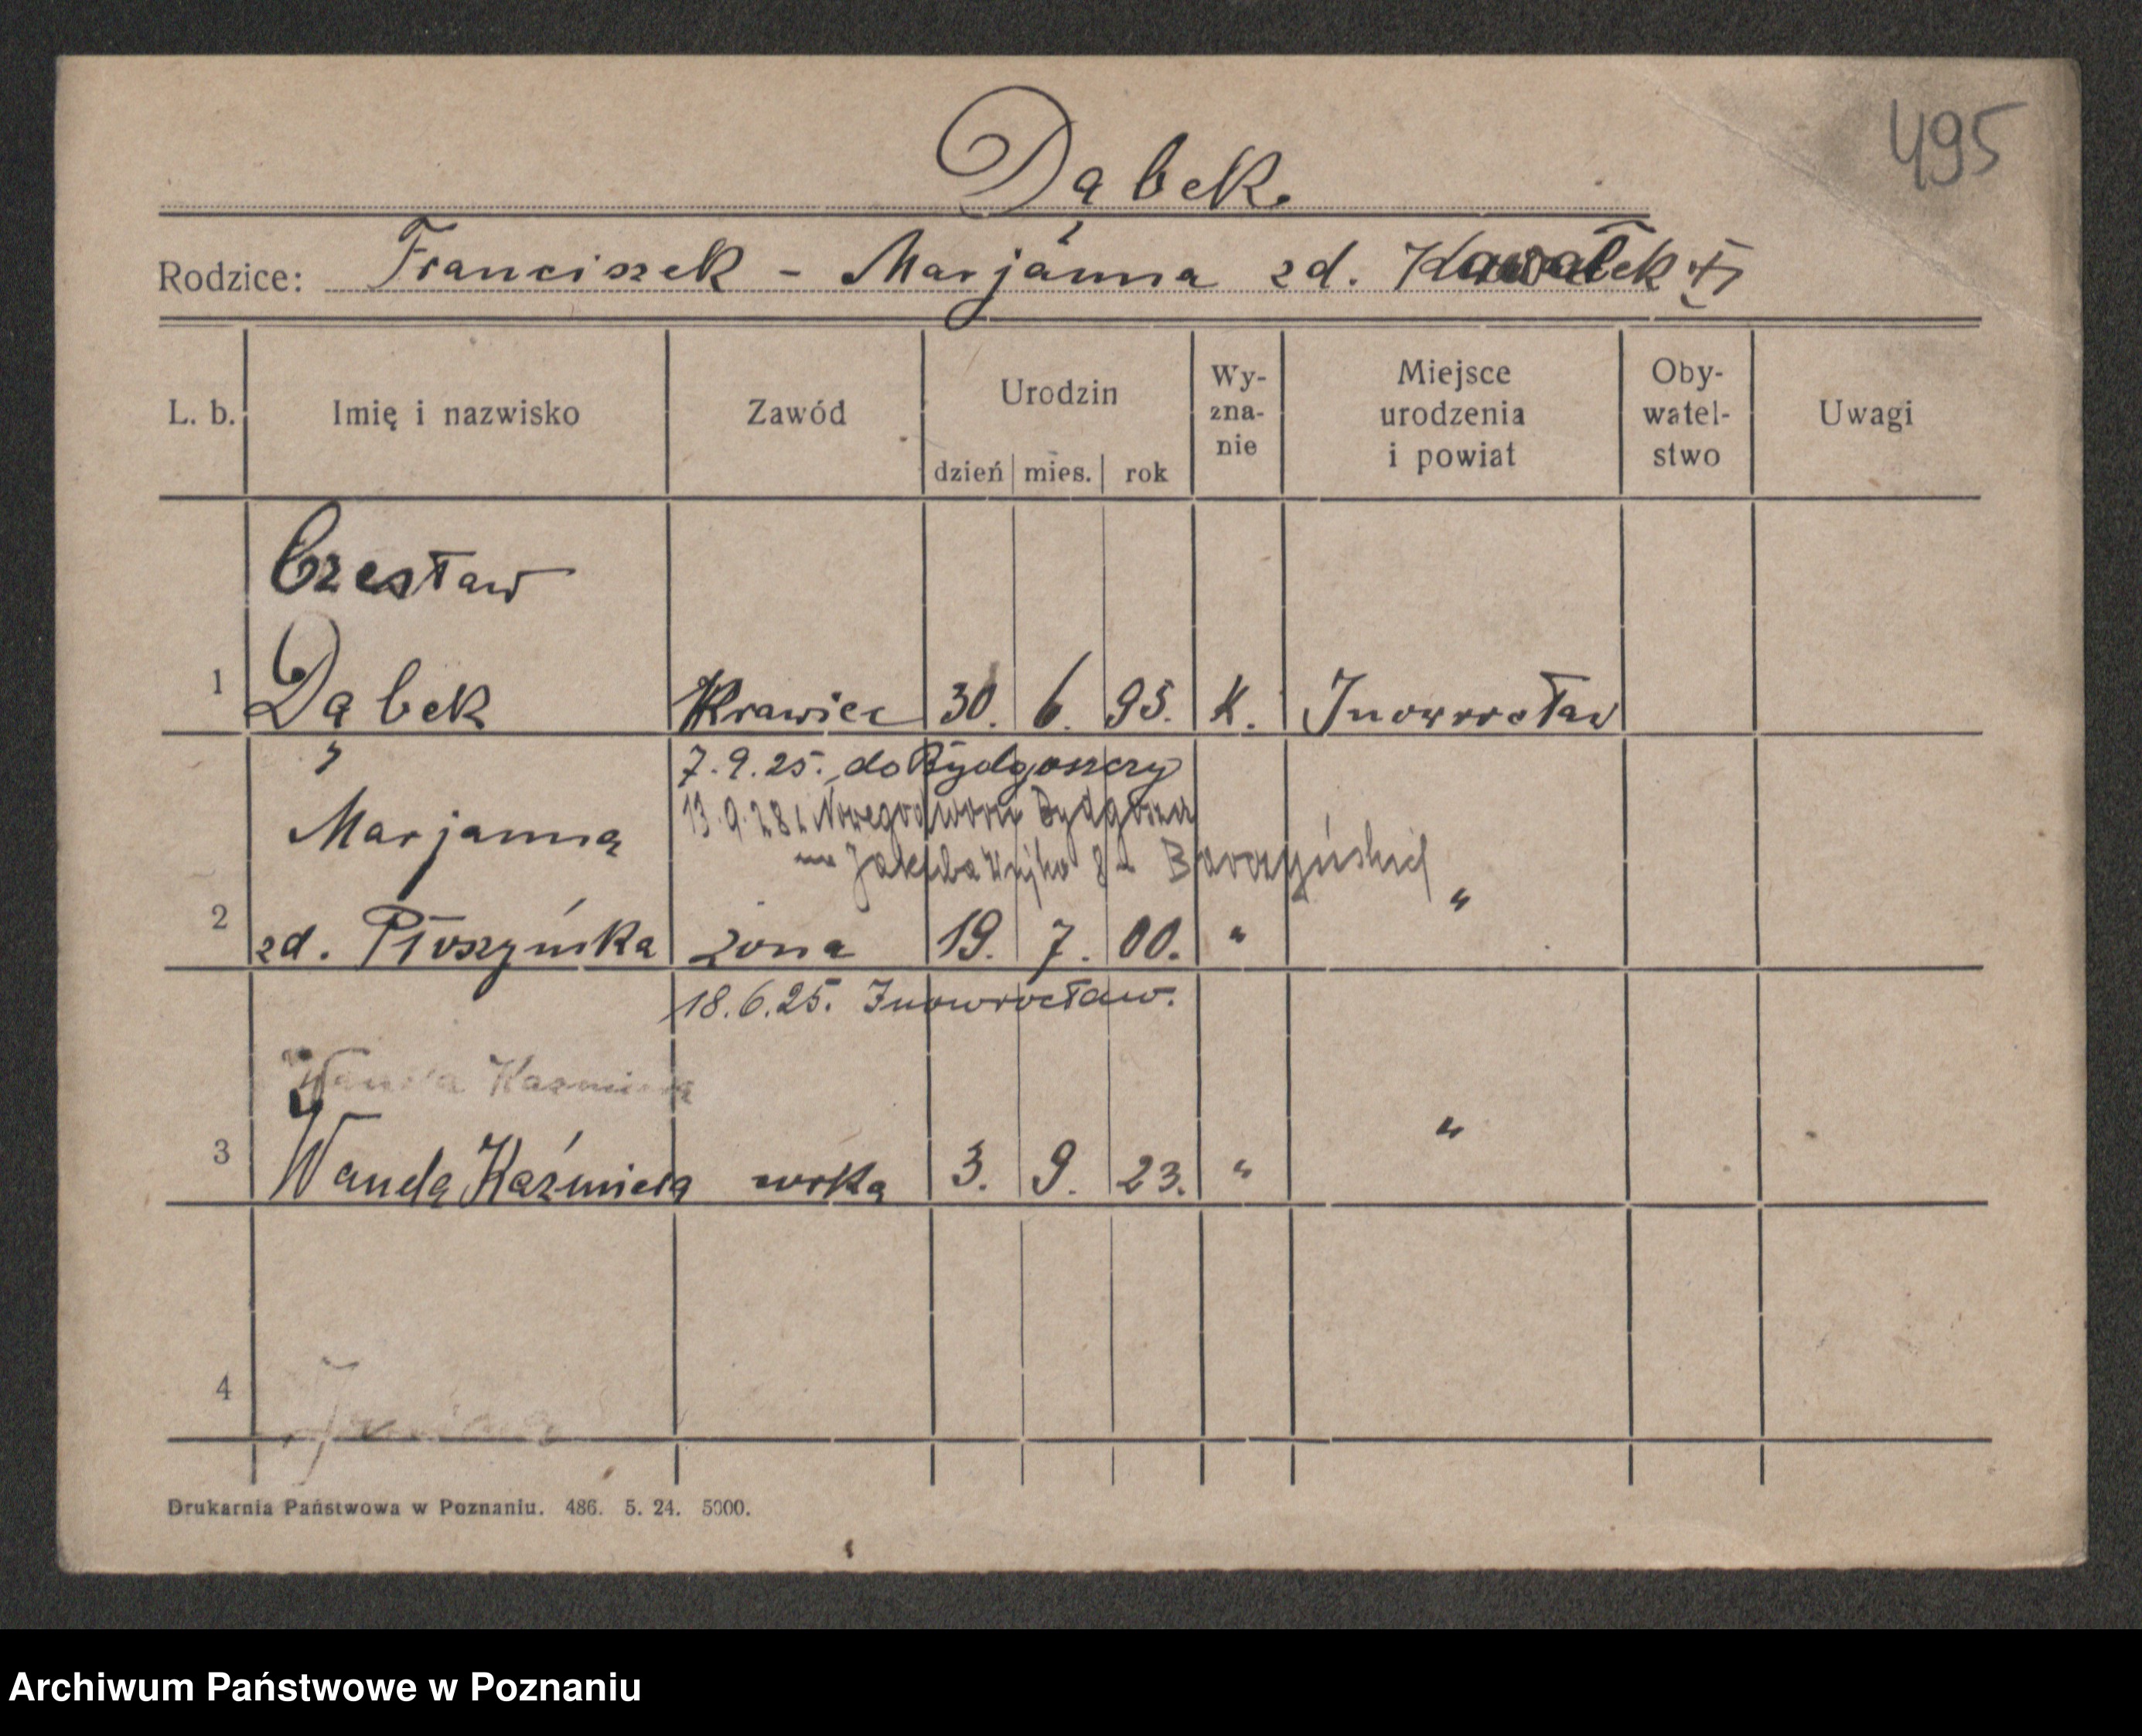 495
Dąbek.
Rodzice: Franciszek - Marjánna zd. Kawałek
L. b. Imię i nazwisko Zawód Urodzin dzień mies. rok Wy-zna-nie Miejsce urodzenia i powiat Oby-watel-stwo Uwagi
Czesław
1 Dąbek Krawiec 30. 6. 95. K. Inowrocław
7.9.25. do Bydgoszczy
Marjanna 13.9.28 Bydgoszcz
Jakóba Wujka 8
2 zd. Płoszyńska żona 19. 7. 00. " "
18.6.25. Inowrocław.
Wanda Kazmiera
3 Wanda Kaźmiera córka 3. 9. 23. " "
4 Janina
Drukarnia Państwowa w Poznaniu. 486. 5. 24. 5000.
Archiwum Państwowe w Poznaniu